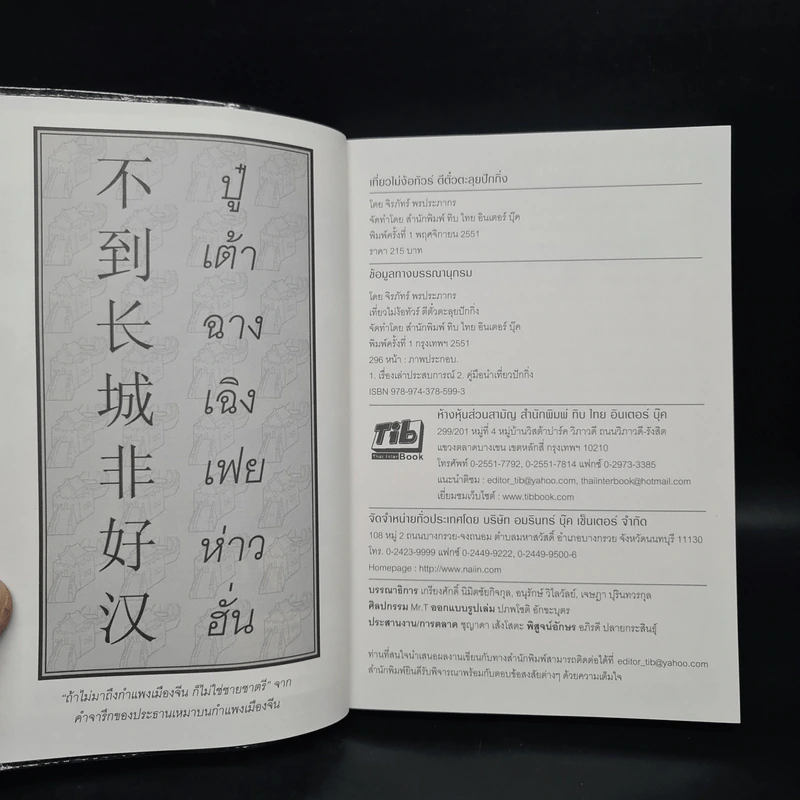 不 ปู๋
到 เต้า
长 ฉาง
城 เฉิง
非 เฟย
好 ห่าว
汉 ฮั่น
"ถ้าไม่มาถึงกำแพงเมืองจีน ก็ไม่ใช่ชายชาตรี" จาก
คำจารึกของประธานเหมาบนกำแพงเมืองจีน
เที่ยวไม่ง้อทัวร์ ตีตั๋วตะลุยปักกิ่ง
โดย จิรภัทร์ พรประภากร
จัดทำโดย สำนักพิมพ์ ทิบ ไทย อินเตอร์ บุ๊ค
พิมพ์ครั้งที่ 1 พฤศจิกายน 2551
ราคา 215 บาท
ข้อมูลทางบรรณานุกรม
โดย จิรภัทร์ พรประภากร
เที่ยวไม่ง้อทัวร์ ตีตั๋วตะลุยปักกิ่ง
จัดทำโดย สำนักพิมพ์ ทิบ ไทย อินเตอร์ บุ๊ค
พิมพ์ครั้งที่ 1 กรุงเทพฯ 2551
296 หน้า : ภาพประกอบ.
1. เรื่องเล่าประสบการณ์ 2. คู่มือนำเที่ยวปักกิ่ง
ISBN 978-974-378-599-3
Tib
Thai Inter Book
ห้างหุ้นส่วนสามัญ สำนักพิมพ์ ทิบ ไทย อินเตอร์ บุ๊ค
299/201 หมู่ที่ 4 หมู่บ้านวิสต้าปาร์ค วิภาวดี ถนนวิภาวดี-รังสิต
แขวงตลาดบางเขน เขตหลักสี่ กรุงเทพฯ 10210
โทรศัพท์ 0-2551-7792, 0-2551-7814 แฟกซ์ 0-2973-3385
แนะนำติชม : editor_tib@yahoo.com, thaiinterbook@hotmail.com
เยี่ยมชมเว็บไซต์ : www.tibbook.com
จัดจำหน่ายทั่วประเทศโดย บริษัท อมรินทร์ บุ๊ค เซ็นเตอร์ จำกัด
108 หมู่ 2 ถนนบางกรวย-จงถนอม ตำบลมหาสวัสดิ์ อำเภอบางกรวย จังหวัดนนทบุรี 11130
โทร. 0-2423-9999 แฟกซ์ 0-2449-9222, 0-2449-9500-6
Homepage : http://www.naiin.com
บรรณาธิการ เกรียงศักดิ์ นิมิตชัยกิจกุล, อนุรักษ์ วิไลวัลย์, เจษฎา ปุรินทวรกุล
ศิลปกรรม Mr.T ออกแบบรูปเล่ม ปภพโชติ อักชะบุตร
ประสานงาน/การตลาด ชุญาดา เส้งโสตะ พิสูจน์อักษร อภิรดี ปลายกระสินธุ์
ท่านที่สนใจนำเสนอผลงานเขียนกับทางสำนักพิมพ์สามารถติดต่อได้ที่ editor_tib@yahoo.com
สำนักพิมพ์ยินดีรับพิจารณาพร้อมกับตอบข้อสงสัยต่างๆ ด้วยความเต็มใจ